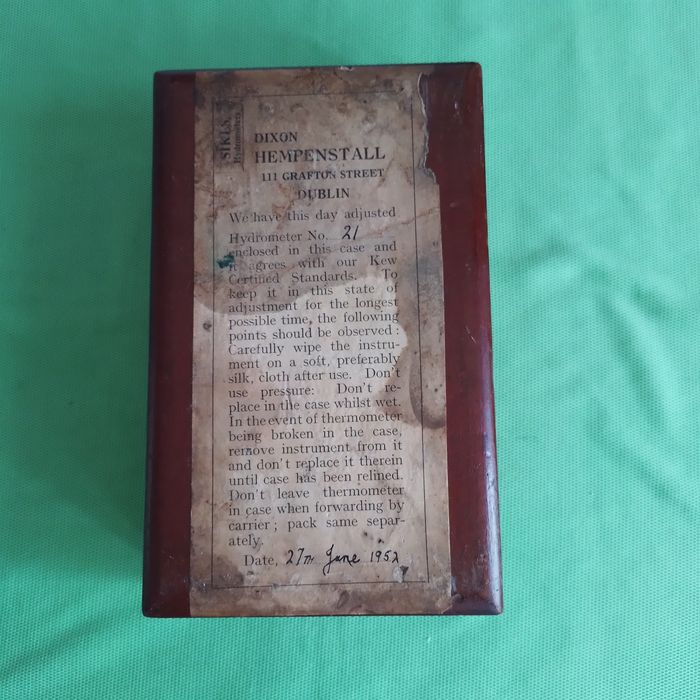 SIKES
Hydrometers
DIXON
HEMPENSTALL
111 GRAFTON STREET
DUBLIN
We have this day adjusted
Hydrometer No. 21
enclosed in this case and
it agrees with our Kew
Certified Standards. To
keep it in this state of
adjustment for the longest
possible time, the following
points should be observed :
Carefully wipe the instru-
ment on a soft, preferably
silk, cloth after use. Don't
use pressure: Don't re-
place in the case whilst wet.
In the event of thermometer
being broken in the case,
remove instrument from it
and don't replace it therein
until case has been relined.
Don't leave thermometer
in case when forwarding by
carrier ; pack same separ-
ately.
Date, 27TH June 1952